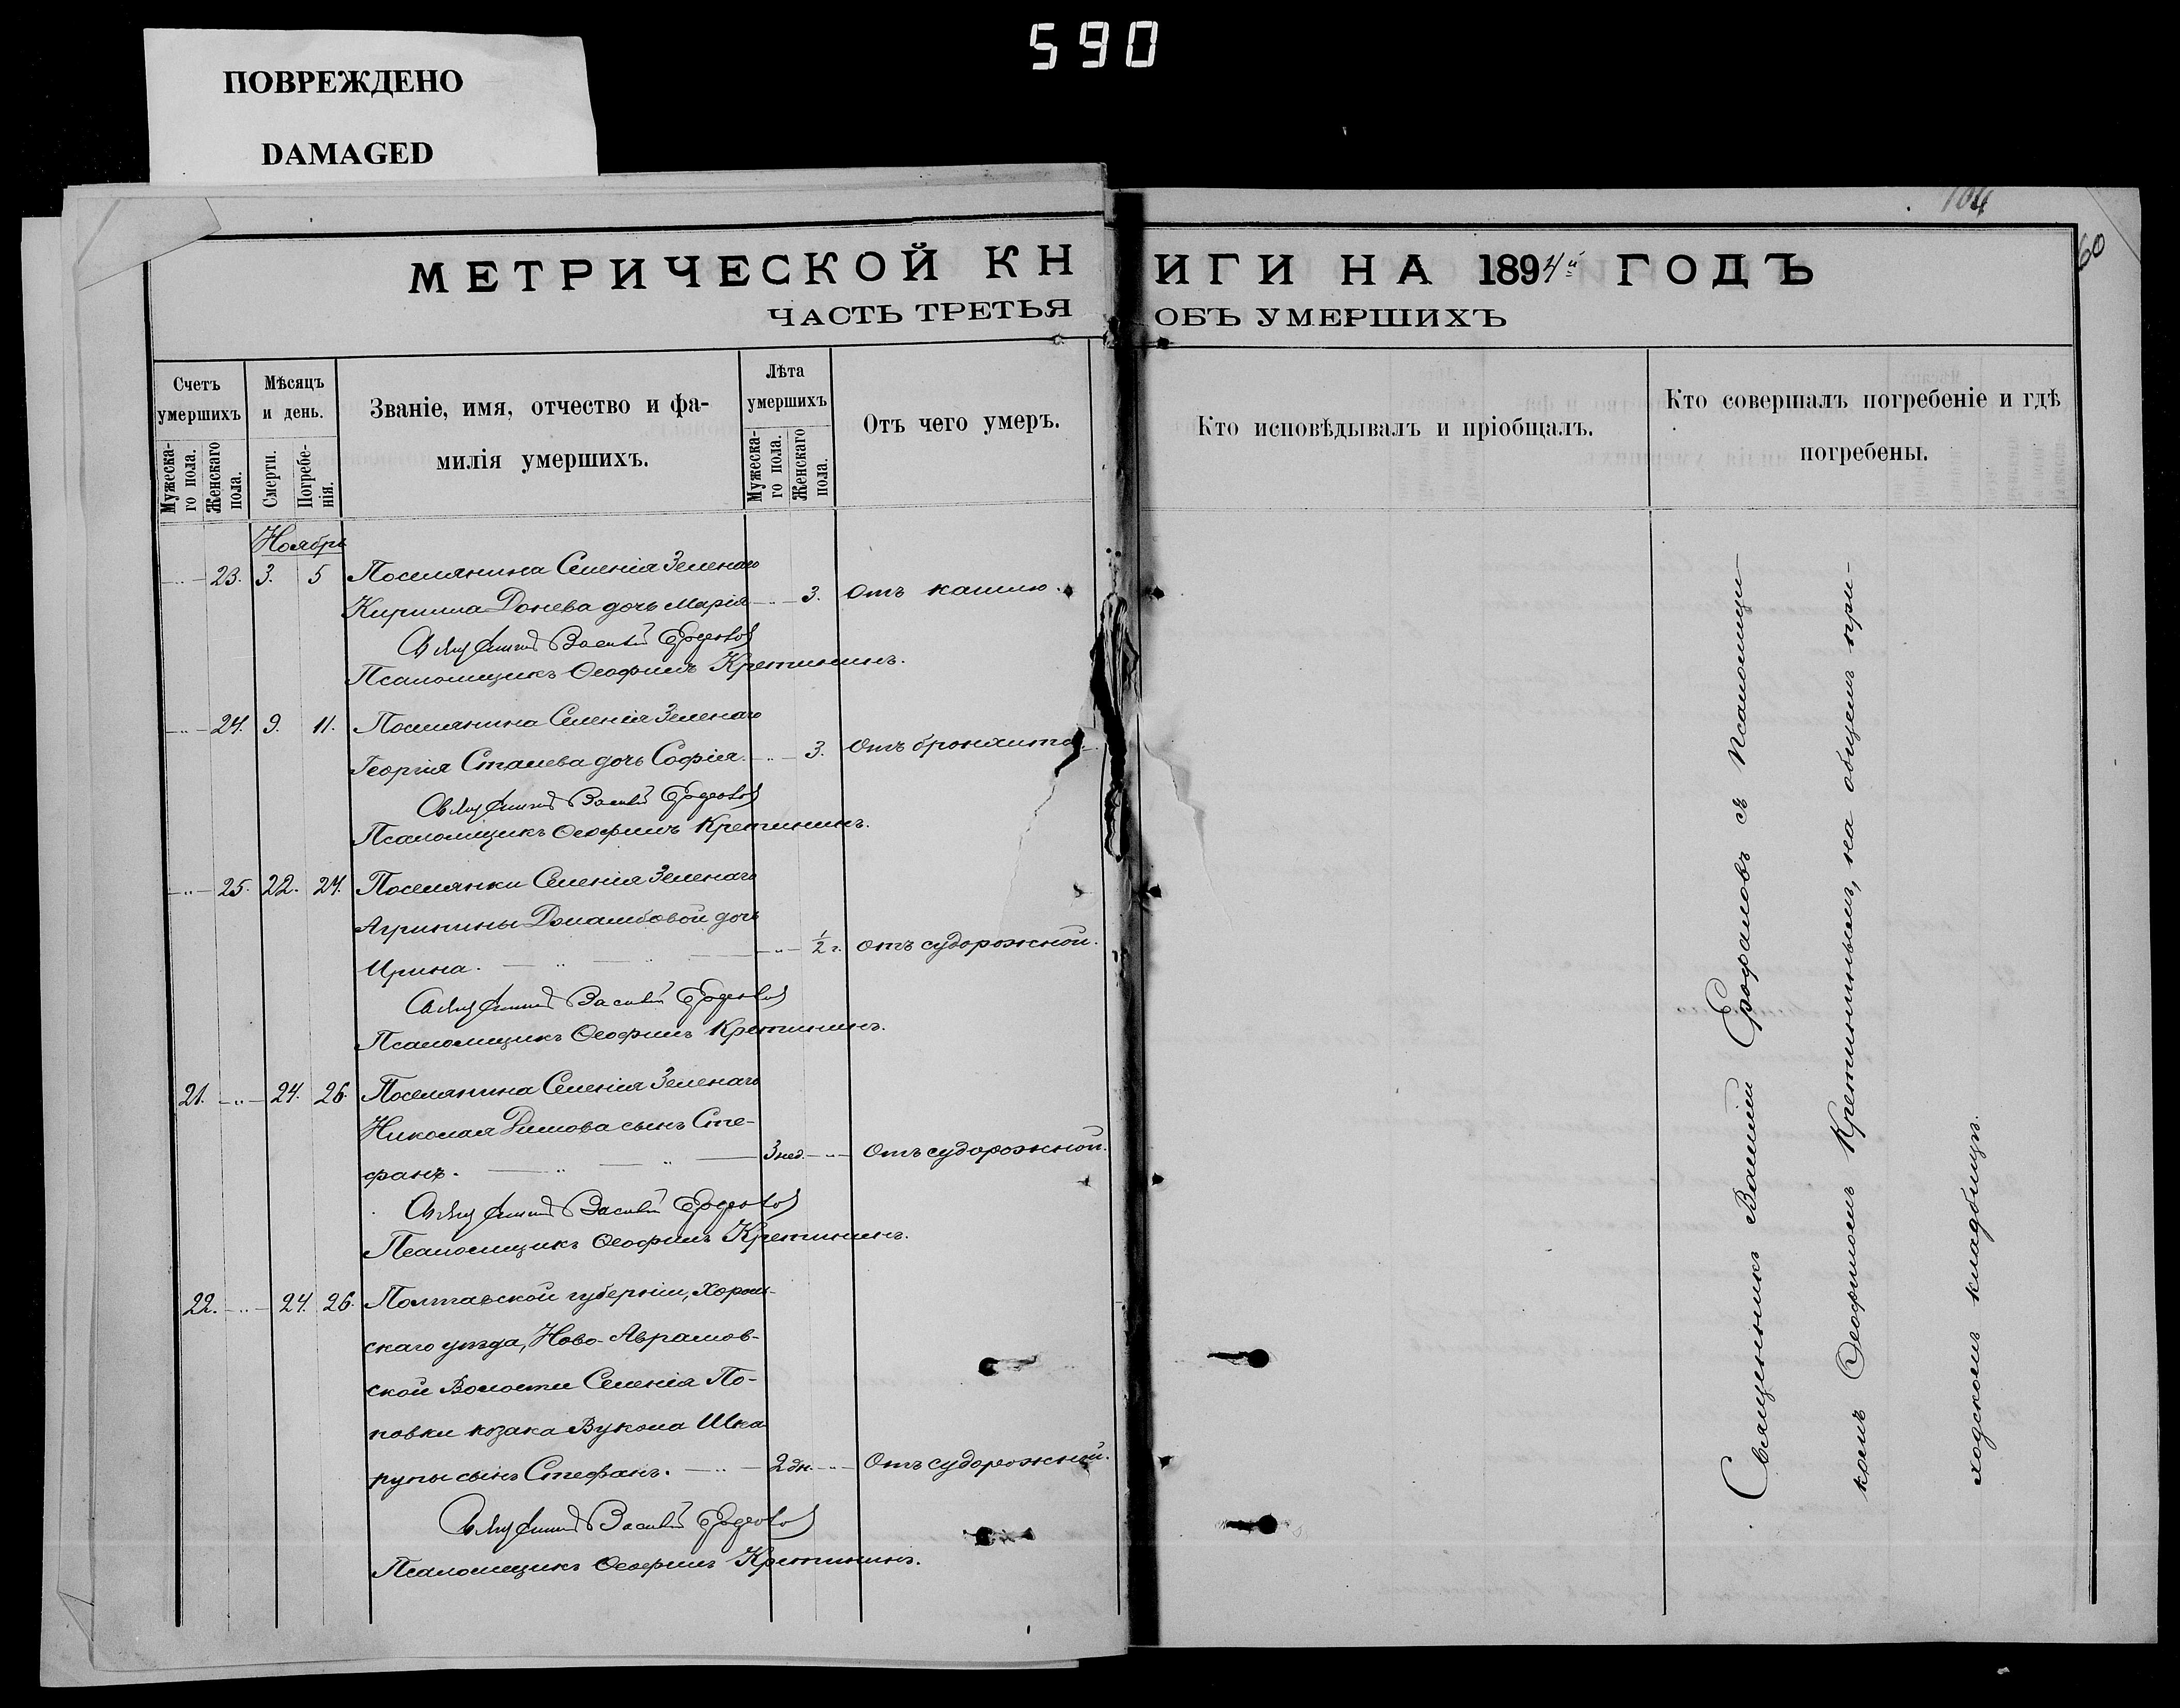 590
ПОВРЕЖДЕНО
DAMAGED
104
60
МЕТРИЧЕСКОЙ КНИГИ НА 1894й ГОДЪ
ЧАСТЬ ТРЕТЬЯ ОБЪ УМЕРШИХЪ
Счетъ умершихъ
Мужеска-
го пола.
Женскаго
пола.
Мѣсяцъ
и день.
Смерти.
Погребе-
нія.
Званіе, имя, отчество и фа-
милія умершихъ.
Лѣта
умершихъ
Мужеска-
го пола.
Женскаго
пола.
Отъ чего умеръ.
Кто исповѣдывалъ и пріобщалъ.
Кто совершалъ погребеніе и гдѣ
погребены.
Ноябрь
23. 3. 5 Поселянина Селенія Зеленаго
Кирилла Донева дочь Марія 3. Отъ кашлю.
Священникъ Василій
Псаломщикъ Ѳеофилъ Кретининъ.
24. 9. 11. Поселянина Селенія Зеленаго
Георгія Сталева дочь Софія. 3. Отъ бронхита.
Священникъ Василій
Псаломщикъ Ѳеофилъ Кретининъ.
25. 22. 24. Поселянки Селенія Зеленаго
Агрипины дочь
Ирина. 1/2 г. отъ судорожной.
Священникъ Василій
Псаломщикъ Ѳеофилъ Кретининъ.
21. 24. 26. Поселянина Селенія Зеленаго
Николая Димова сынъ Сте-
фанъ. 3 нед. Отъ судорожной.
Священникъ Василій
Псаломщикъ Ѳеофилъ Кретининъ.
22. 24. 26. Полтавской губерніи, Хороль-
скаго уѣзда, Ново-Аврамов-
ской Волости Селенія По-
повки козака Вукола Шка-
рупы сынъ Стефанъ. 2 дн. Отъ судорожной.
Священникъ Василій
Псаломщикъ Ѳеофилъ Кретининъ.
Священникъ Василій съ Псаломщи-
комъ Ѳеофиломъ Кретининымъ, на общемъ при-
ходскомъ кладбищѣ.